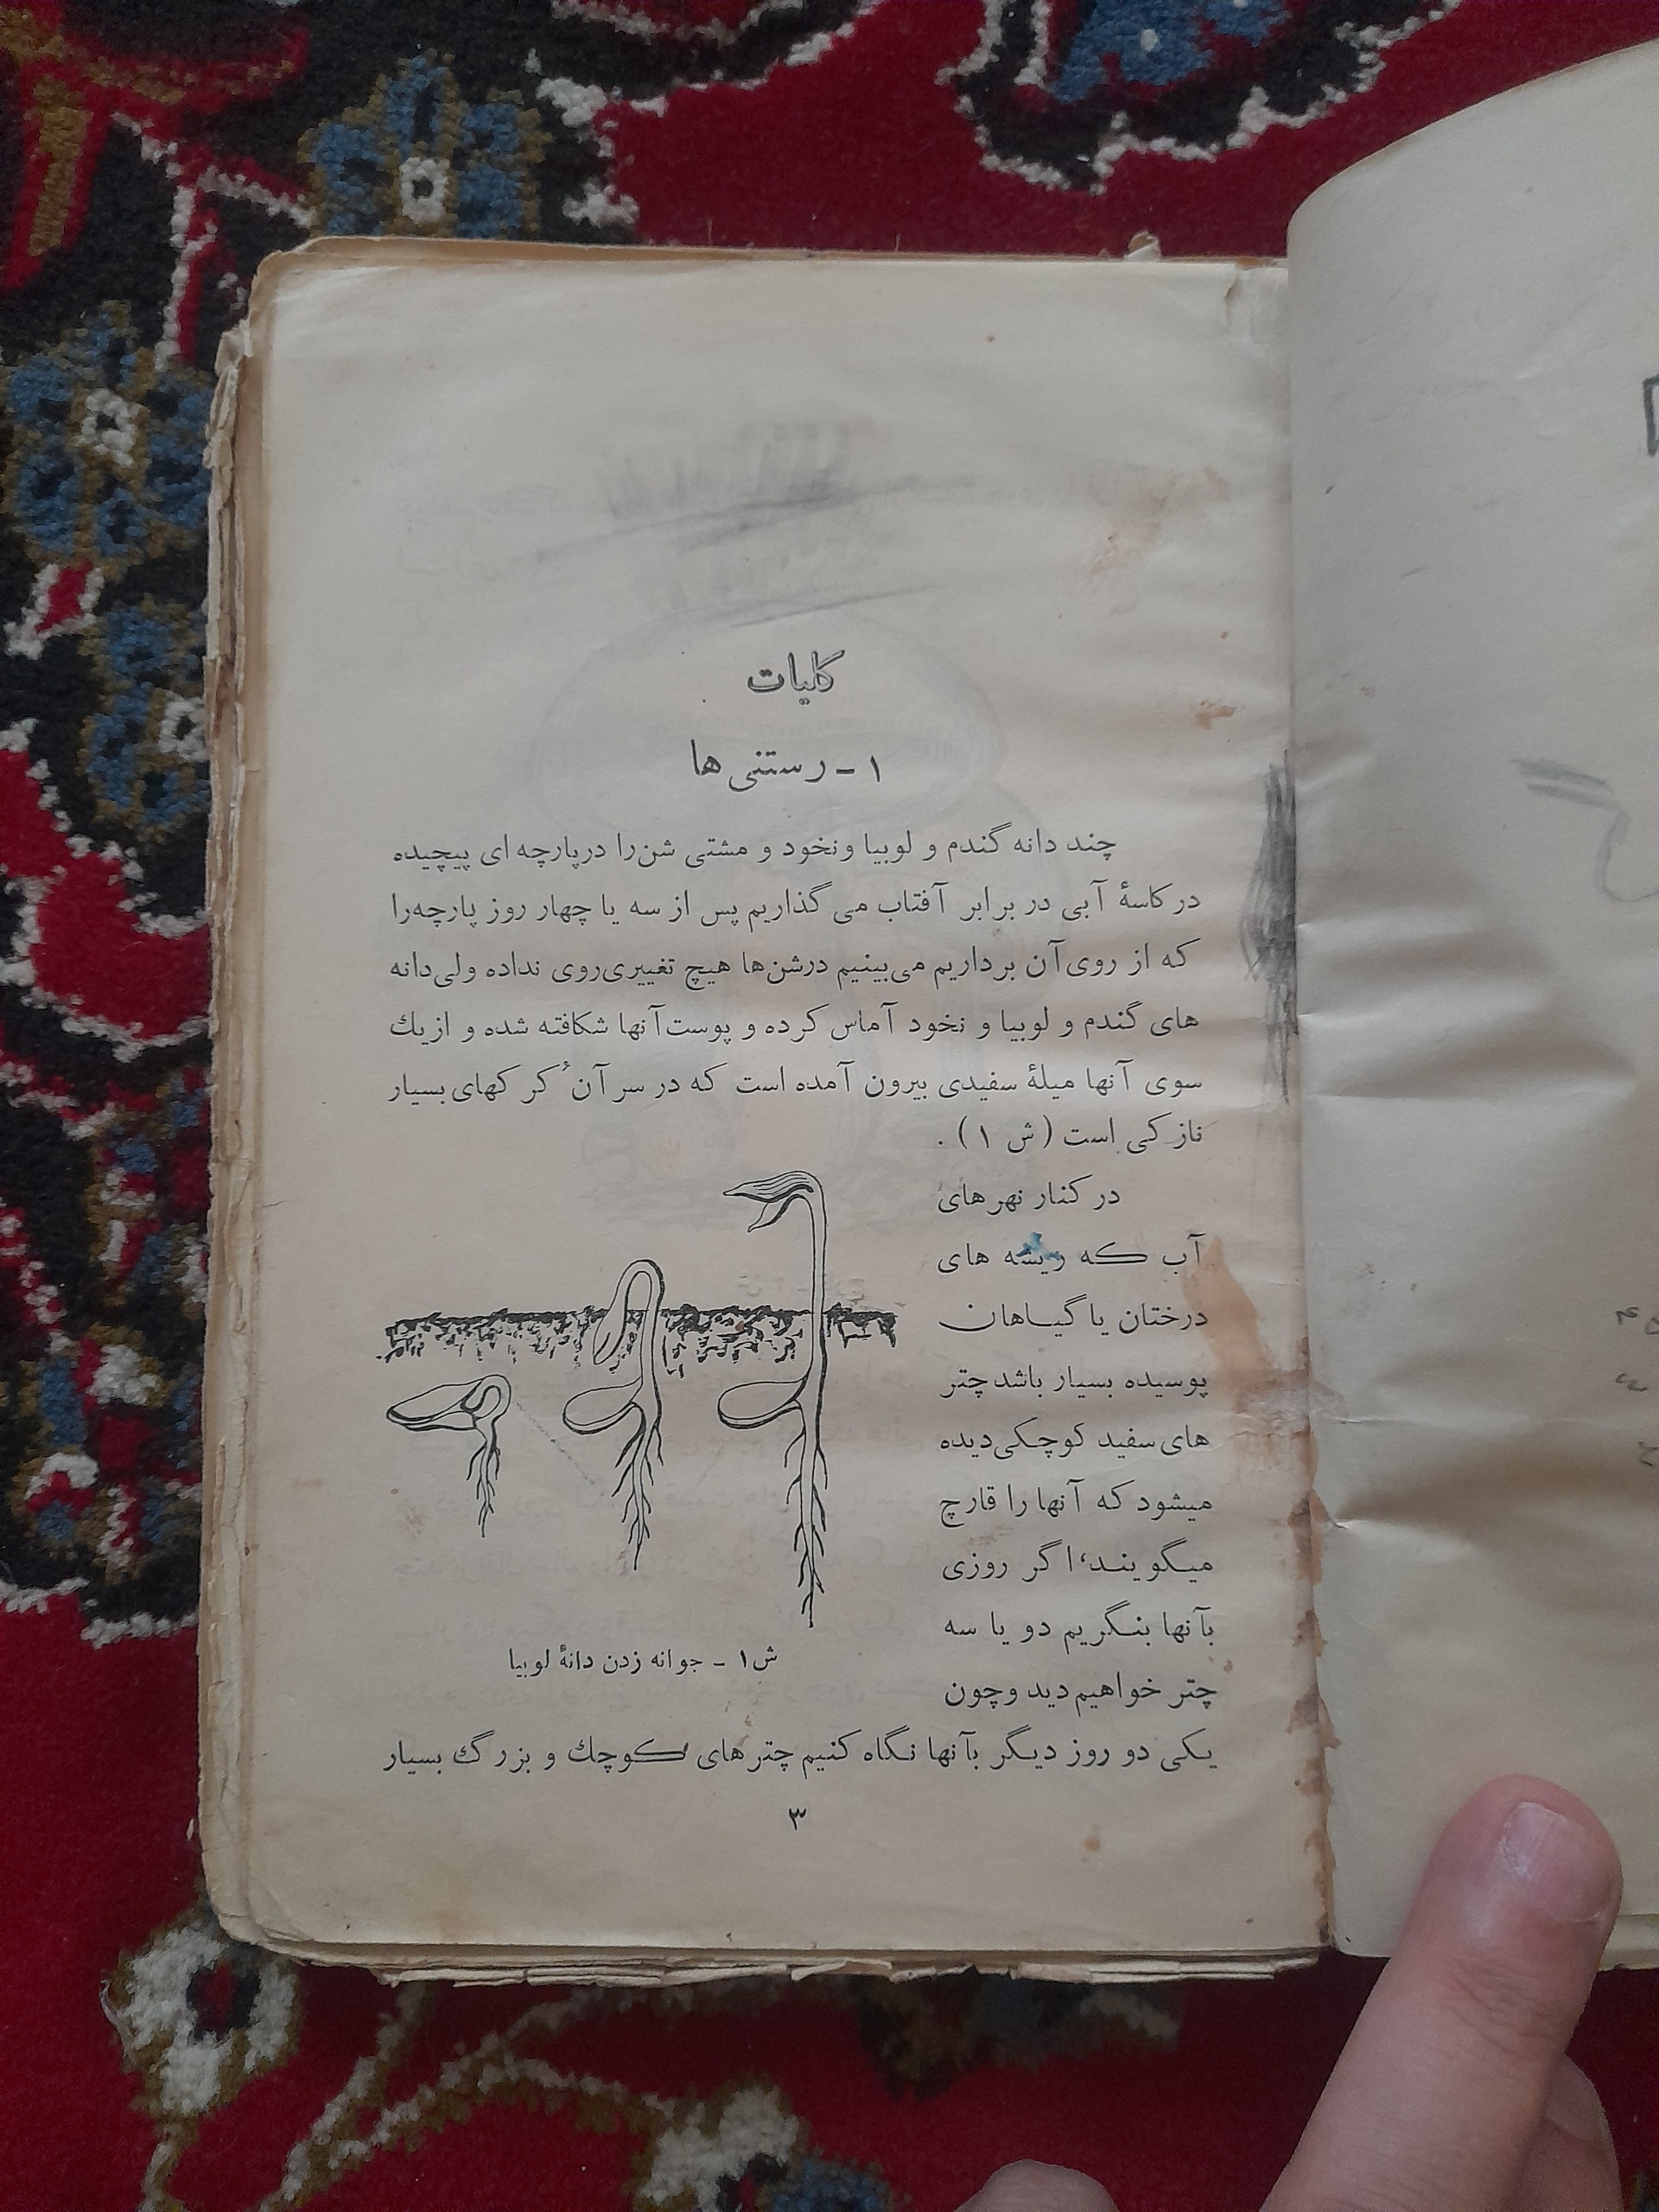 کلیات
۱ - رستنی ها
چند دانه گندم و لوبیا ونخود و مشتی شن‌را درپارچه ای پیچیده
در کاسهٔ آبی در برابر آفتاب می گذاریم پس از سه یا چهار روز پارچه‌را
که از روی آن برداریم می‌بینیم درشن‌ها هیچ تغییری‌روی نداده ولی‌دانه
های گندم و لوبیا و نخود آماس کرده و پوست‌آنها شکافته شده و ازیك
سوی آنها میلهٔ سفیدی بیرون آمده است که در سر آن ُکرکهای بسیار
نازکی است (ش ۱) .
در کنار نهرهای
آب که ریشه های
درختان یا گیاهان
پوسیده بسیار باشد چتر
های سفید کوچکی‌دیده
میشود که آنها را قارچ
میگویند، اگر روزی
بآنها بنگریم دو یا سه
چتر خواهیم دید وچون
ش۱ - جوانه زدن دانهٔ لوبیا
یکی دو روز دیگر بآنها نگاه کنیم چترهای کوچك و بزرگ بسیار
۳